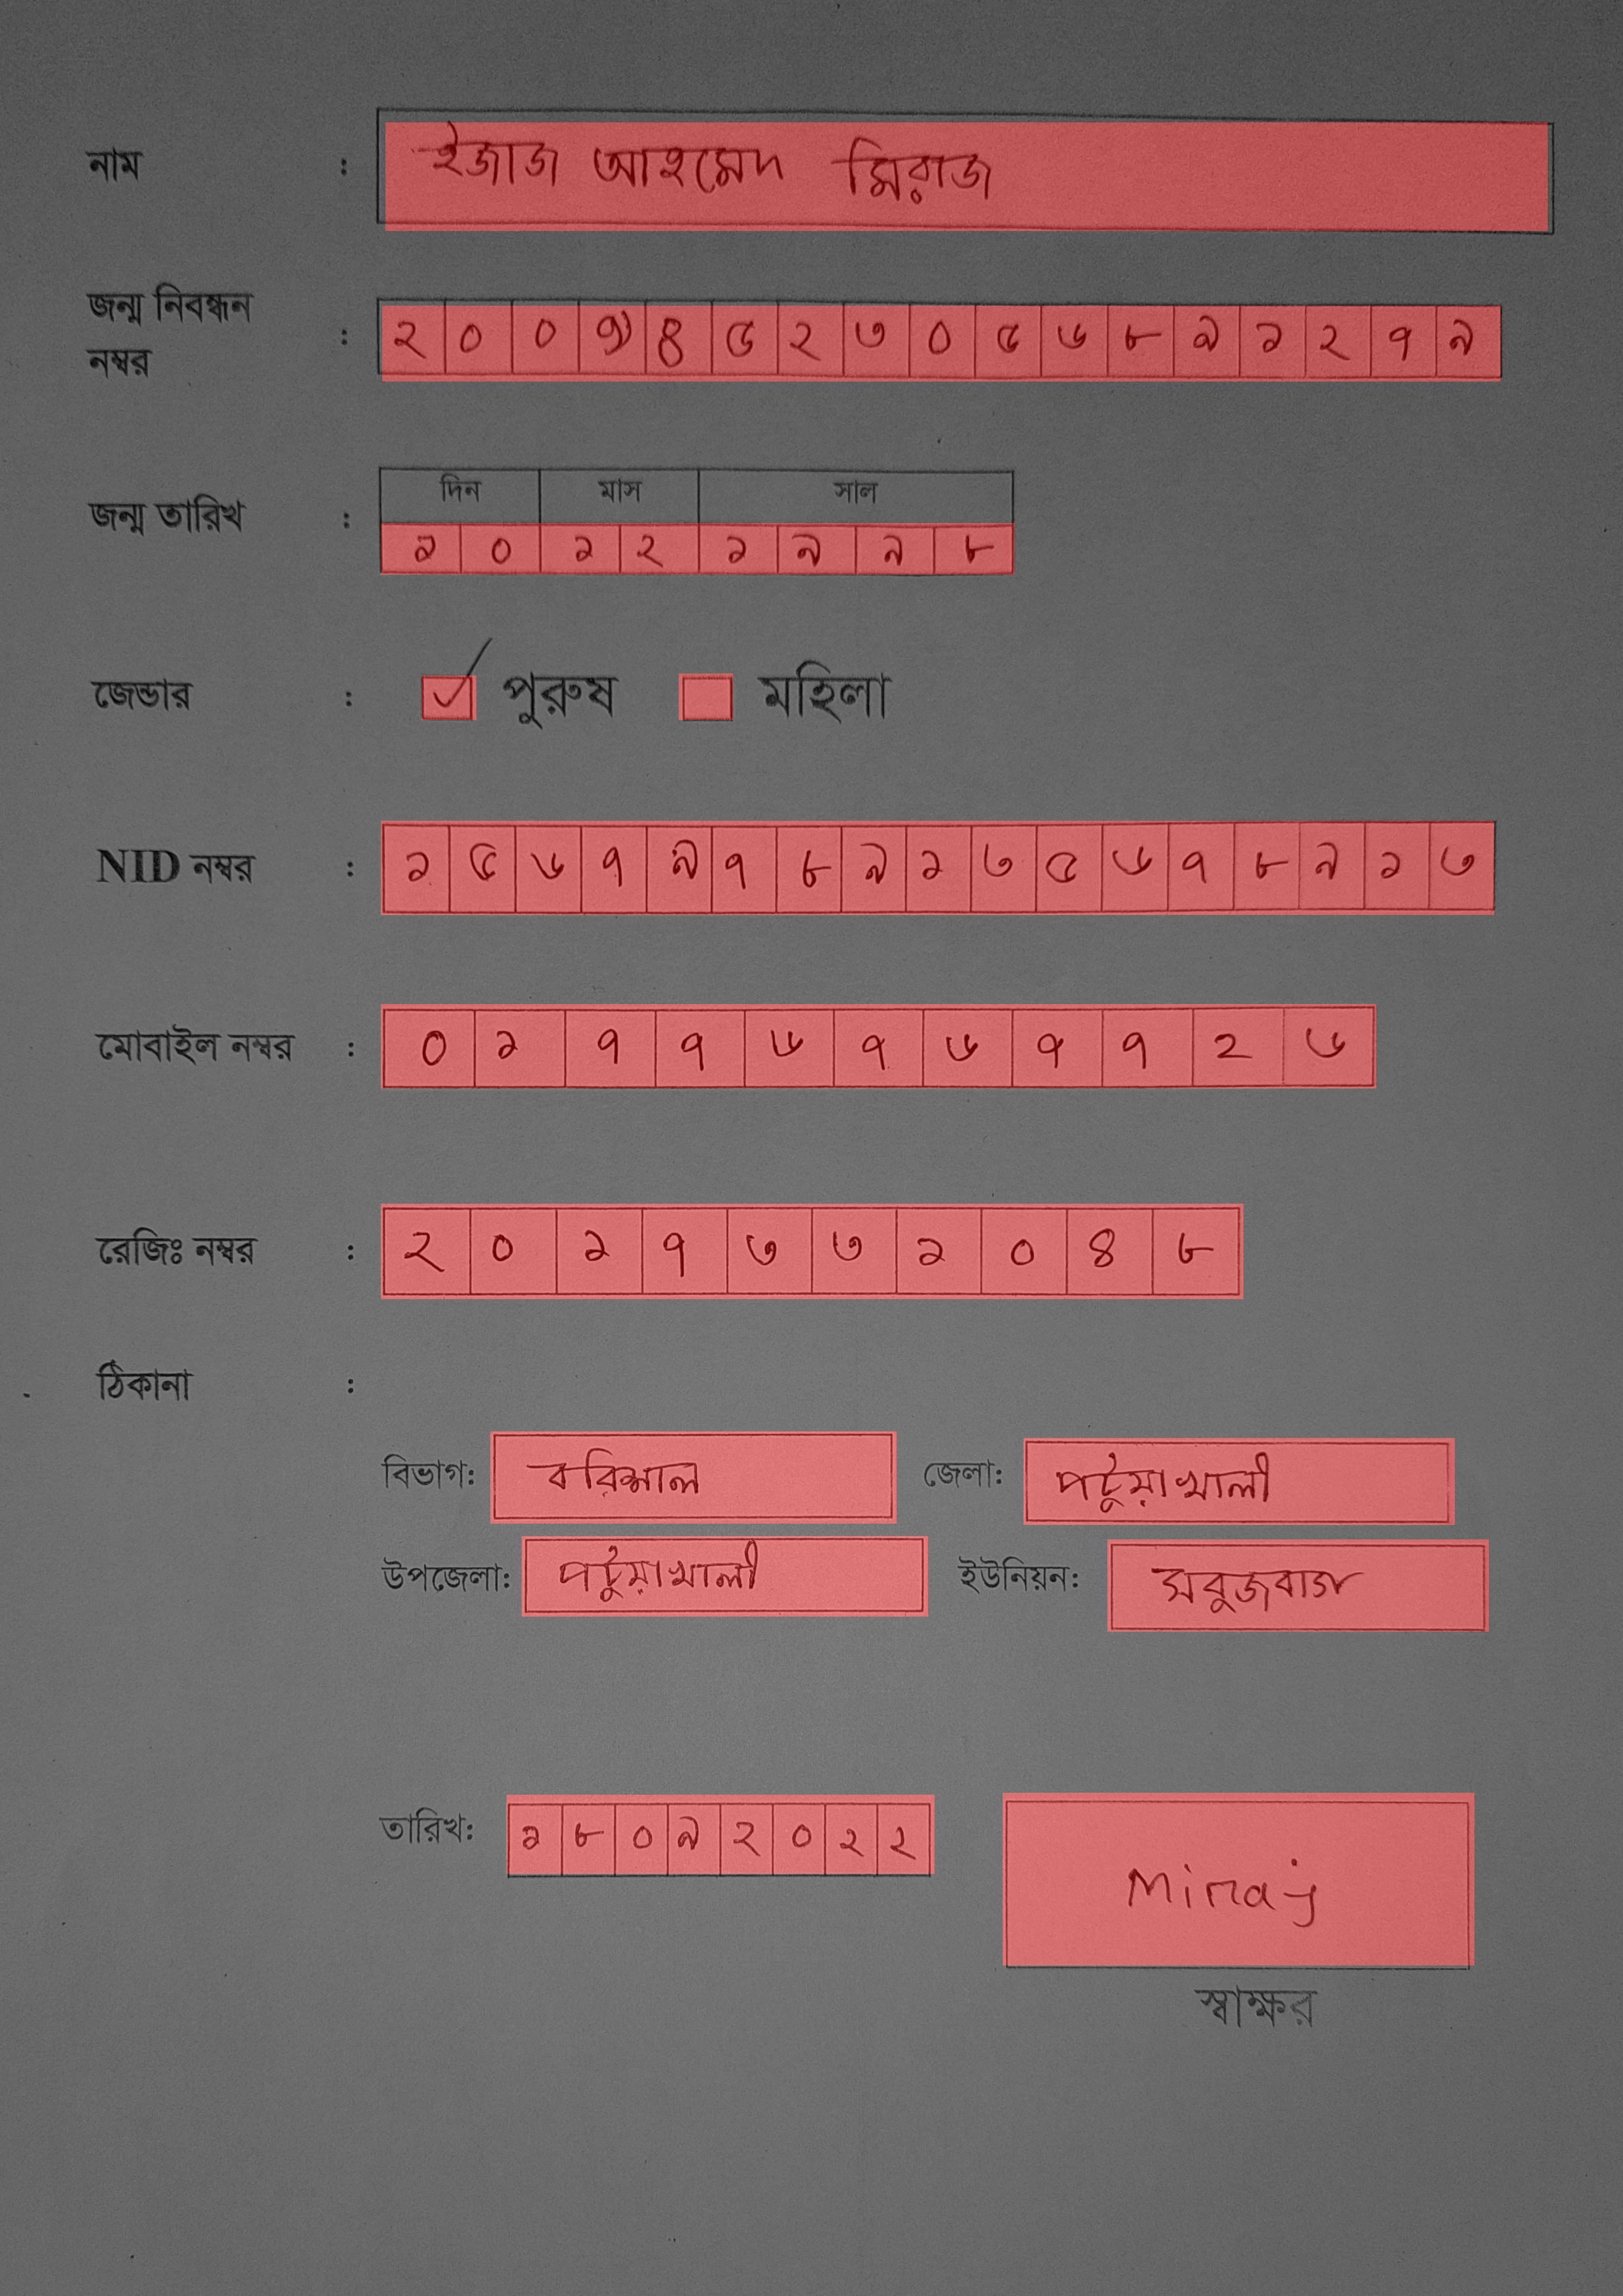 নাম : ইজাজ আহমেদ মিরাজ
জন্ম নিবন্ধন
নম্বর : ২ ০ ০ ৪ ৫ ২ ৩ ০ ৫ ৬ ৮ ৯ ১ ২ ৭ ৯
দিন মাস সাল
জন্ম তারিখ : ১ ০ ১ ২ ১ ৯ ৯ ৮
জেন্ডার : ✓ পুরুষ মহিলা
NID নম্বর : ১ ৫ ৬ ৭ ৯ ৭ ৮ ৯ ১ ৩ ৫ ৬ ৭ ৮ ৯ ১ ৩
মোবাইল নম্বর : ০ ১ ৭ ৭ ৬ ৭ ৬ ৭ ৭ ২ ৬
রেজিঃ নম্বর : ২ ০ ১ ৭ ৩ ৩ ১ ০ ৪ ৮
ঠিকানা :
বিভাগ: বরিশাল জেলা: পটুয়াখালী
উপজেলা: পটুয়াখালী ইউনিয়ন: সবুজবাগ
তারিখ: ১ ৮ ০ ৯ ২ ০ ২ ২
Miraj
স্বাক্ষর